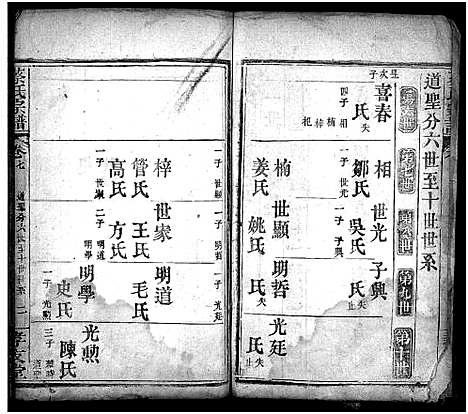 道聖分六世至十世世系
第六世
第七世
第八世
第九世
第十世
喜春
氏失
四子 相 楠 梓 杞
相
鄒氏
一子 世光
世光
吳氏
一子 子興
子興
氏失
楠
姜氏
一子 世顯
世顯
姚氏
一子 明哲
明哲
氏
一子 光廷
光廷
氏
梓
管氏
高氏
一子 世家
世家
王氏
方氏
二子 明道 明學
明道
毛氏
明學
史氏
一子 光勲
光勲
陳氏
氏宗譜
卷之七
道聖分六世至十世世系
一